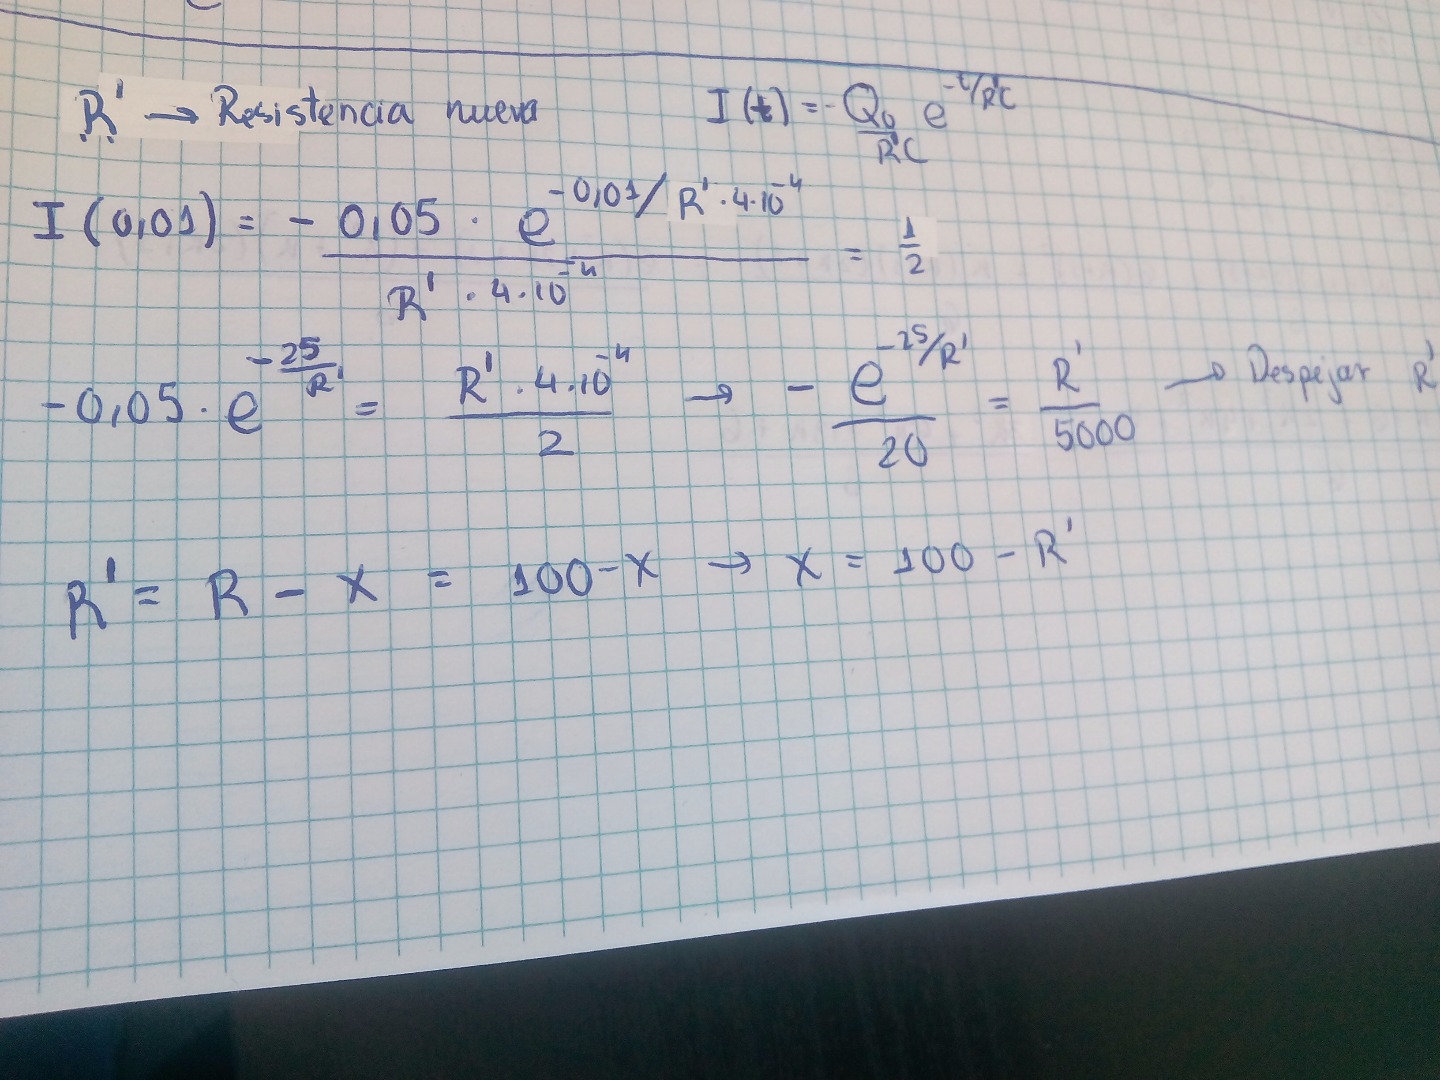 R' → Resistencia nueva I(t) = -Q₀/R'C e^-t/R'C
I(0,01) = - 0,05 · e^-0,01/R'·4·10^-4 / R'·4·10^-4 = 1/2
-0,05 · e^-25/R' = R'·4·10^-4 / 2 → - e^-25/R' / 20 = R' / 5000 → Despejar R'
R' = R - x = 100-x → x = 100 - R'